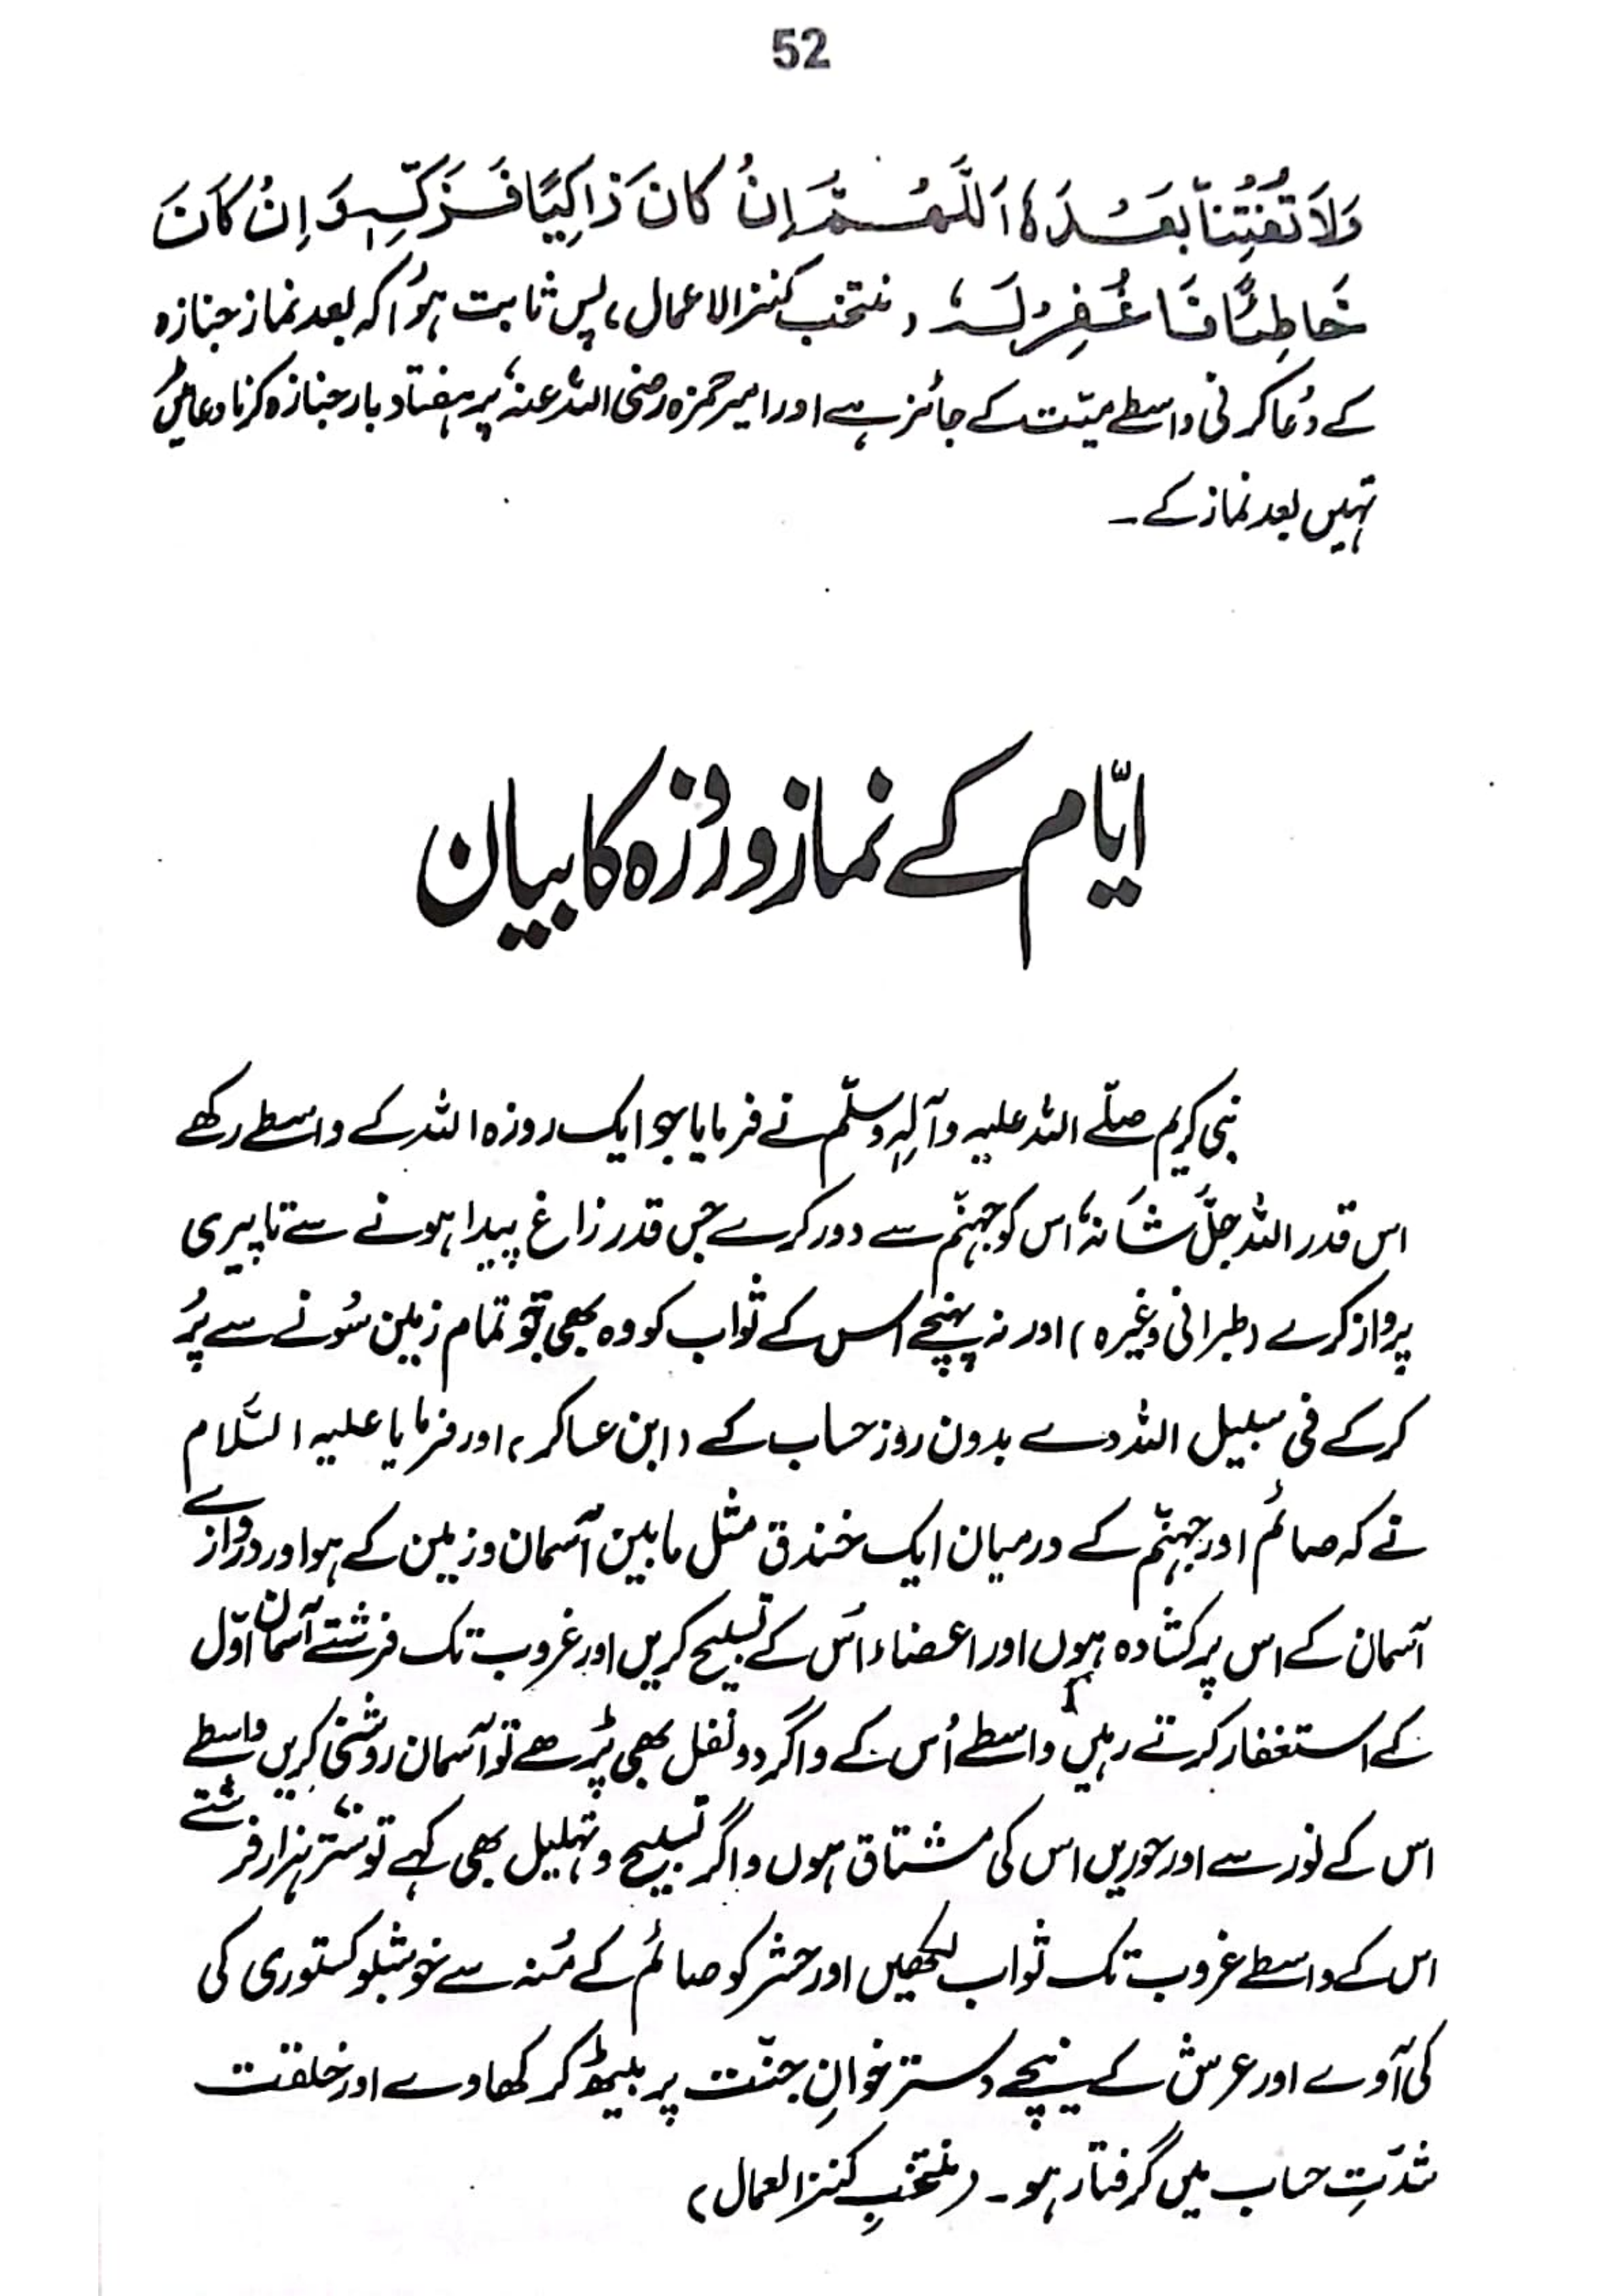 52
وَلَا تُفْتِنَّا بَعْدَہٗ اَللّٰهُمَّ اِنْ کَانَ زَاکِیًا فَزَکِّہٖ وَ اِنْ کَانَ
خَاطِئًا فَاغْفِرْ لَہٗ (منتخب کنز الاعمال) پس ثابت ہوُا کہ بعد نماز جنازہ
کے دُعا کرنی واسطے میّت کے جائز ہے اور امیر حمزہ رضی اللہ عنہٗ پر ہفتاد بار جنازہ کرنا دعا میں
نہیں بعد نماز کے ۔
ایّام کے نماز و روزہ کا بیان
نبی کریم صلّے اللہ علیہ وآلہٖ وسلّم نے فرمایا جو ایک روزہ اللہ کے واسطے رکھے
اس قدر اللہ جلَّ شَانہٗ اس کو جہنّم سے دور کرے جس قدر زاغ پیدا ہونے سے تا پیری
پرواز کرے (طبرانی وغیرہ) اور نہ پہنچے اس کے ثواب کو وہ بھی جو تمام زمین سُونے سے پُر
کر کے فی سبیل اللہ دے بدون روز حساب کے (ابن عساکر) اور فرمایا علیہ السَّلام
نے کہ صائم اور جہنّم کے درمیان ایک خندق مثل مابین آسمان و زمین کے ہو اور دروازے
آسمان کے اس پر کشادہ ہوں اور اعضاء اُس کے تسبیح کریں اور غروب تک فرشتے آسمان اوّل
کے استغفار کرتے رہیں واسطے اُس کے و اگر دو نفل بھی پڑھے تو آسمان روشنی کریں واسطے
اس کے نور سے اور حوریں اس کی مشتاق ہوں و اگر تسبیح و تہلیل بھی کہے تو ستّر ہزار فرشتے
اس کے واسطے غروب تک ثواب لکھیں اور حشر کو صائم کے مُنہ سے خوشبو کستوری کی
کی آوے اور عرش کے نیچے دسترخوانِ جنّت پر بیٹھ کر کھاوے اور خلقت
شدّتِ حساب میں گرفتار ہو ۔ (منتخبِ کنز العمال)